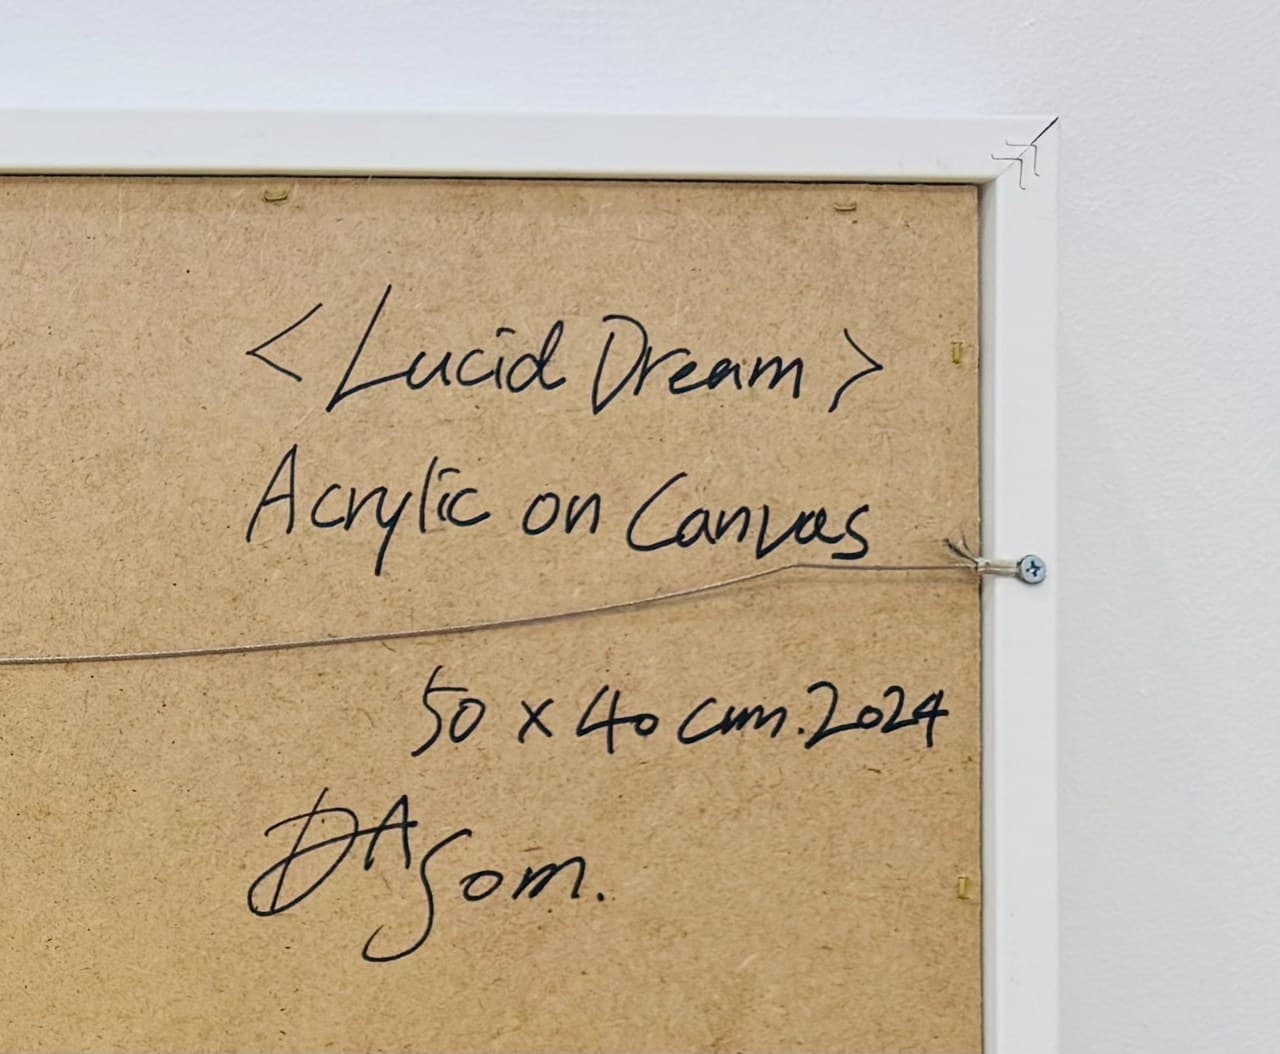 <Lucid Dream>
Acrylic on Canvas
50 x 40 cm. 2024
DASom.